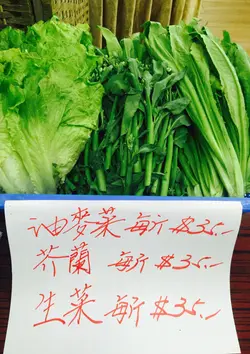 油麥菜 每斤 $35.-
芥蘭 每斤 $35.-
生菜 每斤 $35.-